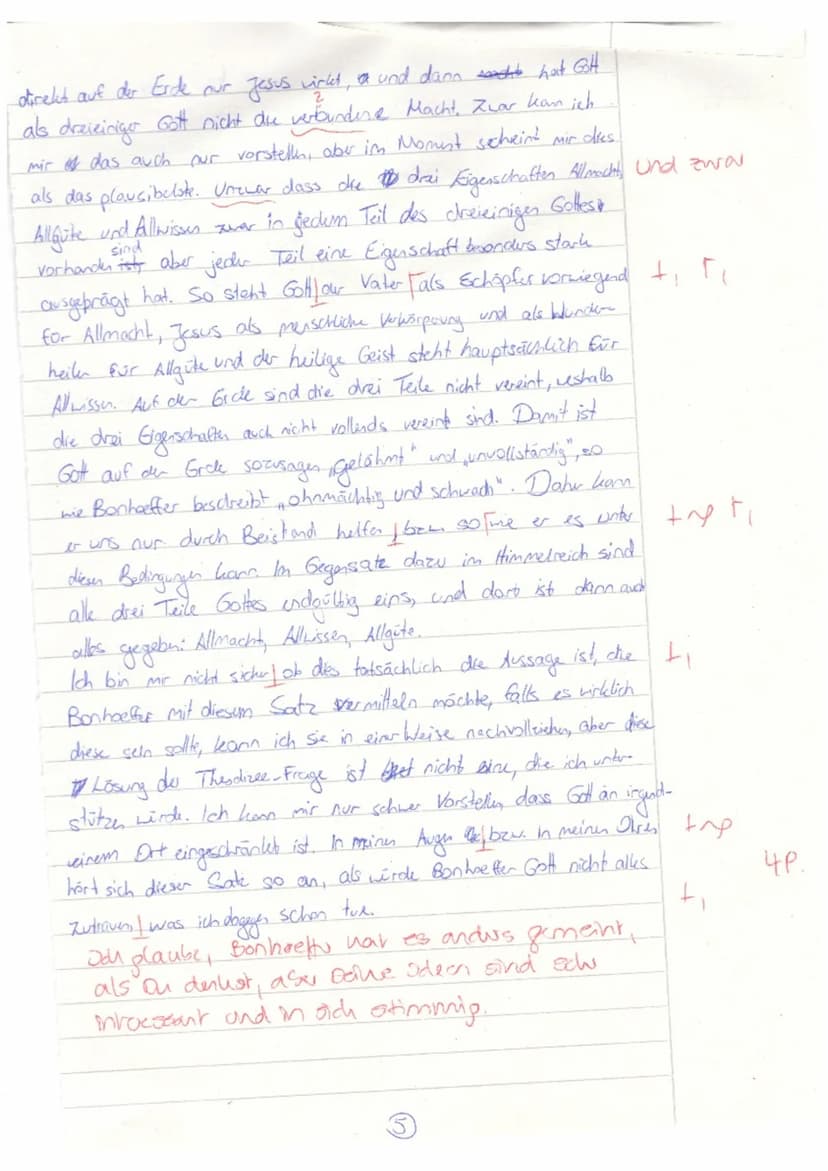 direkt auf der Erde nur Jesus wirkt, und dann hat Gott
2
als dreieiniger Gott nicht die verbundene Macht. Zwar kann ich
mir das auch nur vorstellen, aber im Moment scheint mir dies
als das plausibelste. Unzwar dass die drei Eigenschaften Allmacht, und zwar
Allgüte und Allwissen zwar in jedem Teil des dreieinigen Gottes
vorhanden sind aber jeder Teil eine Eigenschaft besonders stark
ausgeprägt hat. So steht Gott der Vater als Schöpfer vorwiegend
for Allmacht, Jesus als menschliche Verkörperung und als Wunder-
heiler für Allgüte und der heilige Geist steht hauptsächlich für
Allwissen. Auf der Erde sind die drei Teile nicht vereint, weshalb
die drei Eigenschaften auch nicht vollends vereint sind. Damit ist
Gott auf der Erde sozusagen „gelähmt" und „unvollständig", so
wie Bonhoeffer beschreibt „ohnmächtig und schwach". Daher kann
er uns nur durch Beistand helfen bzw. so wie er es unter
diesen Bedingungen kann. Im Gegensatz dazu im Himmelreich sind
alle drei Teile Gottes endgültig eins, und dort ist dann auch
alles gegeben: Allmacht, Allwissen, Allgüte.
Ich bin mir nicht sicher ob dies tatsächlich die Aussage ist, die
Bonhoeffer mit diesem Satz vermitteln möchte, falls es wirklich
diese sein sollte, kann ich sie in einer Weise nachvollziehen, aber diese
Lösung der Theodizee-Frage ist nicht eine, die ich unter-
stützen würde. Ich kann mir nur schwer Vorstellen, dass Gott an irgend-
einem Ort eingeschränkt ist. In meinen Augen bzw. in meinen Ohren
hört sich dieser Satz so an, als würde Bonhoeffer Gott nicht alles
4P.
zutrauen was ich dagegen schon tue.
Ich glaube, Bonhoeffer hat es anders gemeint,
als Du denkst, aber Deine Ideen sind sehr
interessant und in sich stimmig.
5